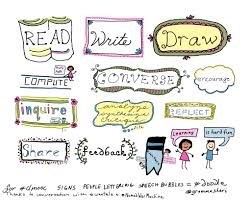 READ
Write
Draw
COMPUTE
CONVERSE
encourage
inquire
analyze
synthesize
critique
REFLECT
Share
feedback
Learning
is hard fun!
for #clmooc SIGNS PEOPLE LETTERING SPEECH BUBBLES = #doodle
Thanks to conversation with